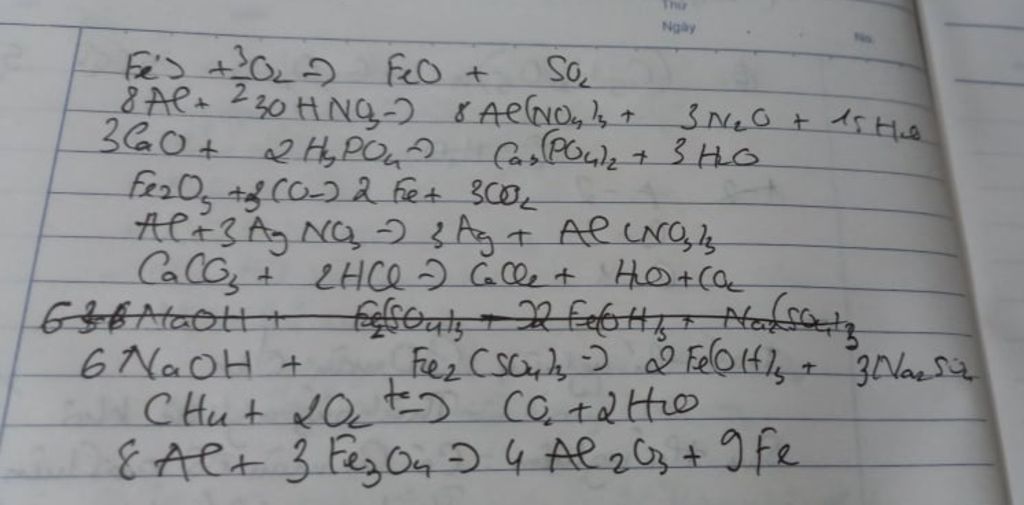 Thứ
Ngày
No.
FeS + 3/2 O₂ → FeO + SO₂
8Al + 30HNO₃ → 8Al(NO₃)₃ + 3N₂O + 15H₂O
3CaO + 2H₃PO₄ → Ca₃(PO₄)₂ + 3H₂O
Fe₂O₃ + 3CO → 2Fe + 3CO₂
Al + 3AgNO₃ → 3Ag + Al(NO₃)₃
CaCO₃ + 2HCl → CaCl₂ + H₂O + CO₂
6NaOH + Fe₂(SO₄)₃ → 2Fe(OH)₃ + Na₂(SO₄)₃
6NaOH + Fe₂(SO₄)₃ → 2Fe(OH)₃ + 3Na₂SO₄
CH₄ + 2O₂ t° → CO₂ + 2H₂O
8Al + 3Fe₃O₄ → 4Al₂O₃ + 9Fe